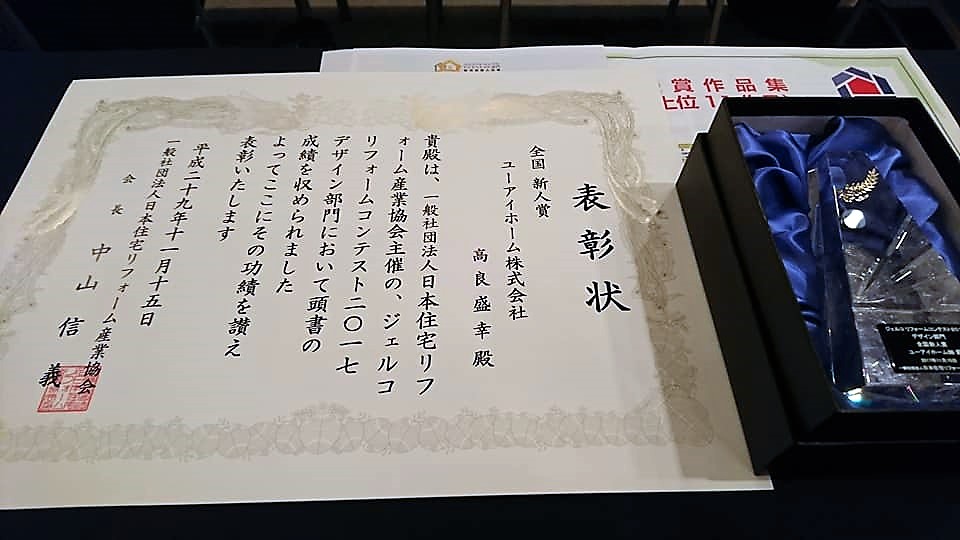 表彰状
全国 新人賞
ユーアイホーム株式会社
高良盛幸 殿
貴殿は、一般社団法人日本住宅リフ
ォーム産業協会主催の、ジェルコ
リフォームコンテスト二〇一七
デザイン部門において頭書の
成績を収められました
よってここにその功績を讃え
表彰いたします
平成二十九年十一月十五日
一般社団法人日本住宅リフォーム産業協会
会長 中山信義
賞作品集
上位1
ジェルコリフォームコンテスト
デザイン部門
全国新人賞
ユーアイホーム㈱